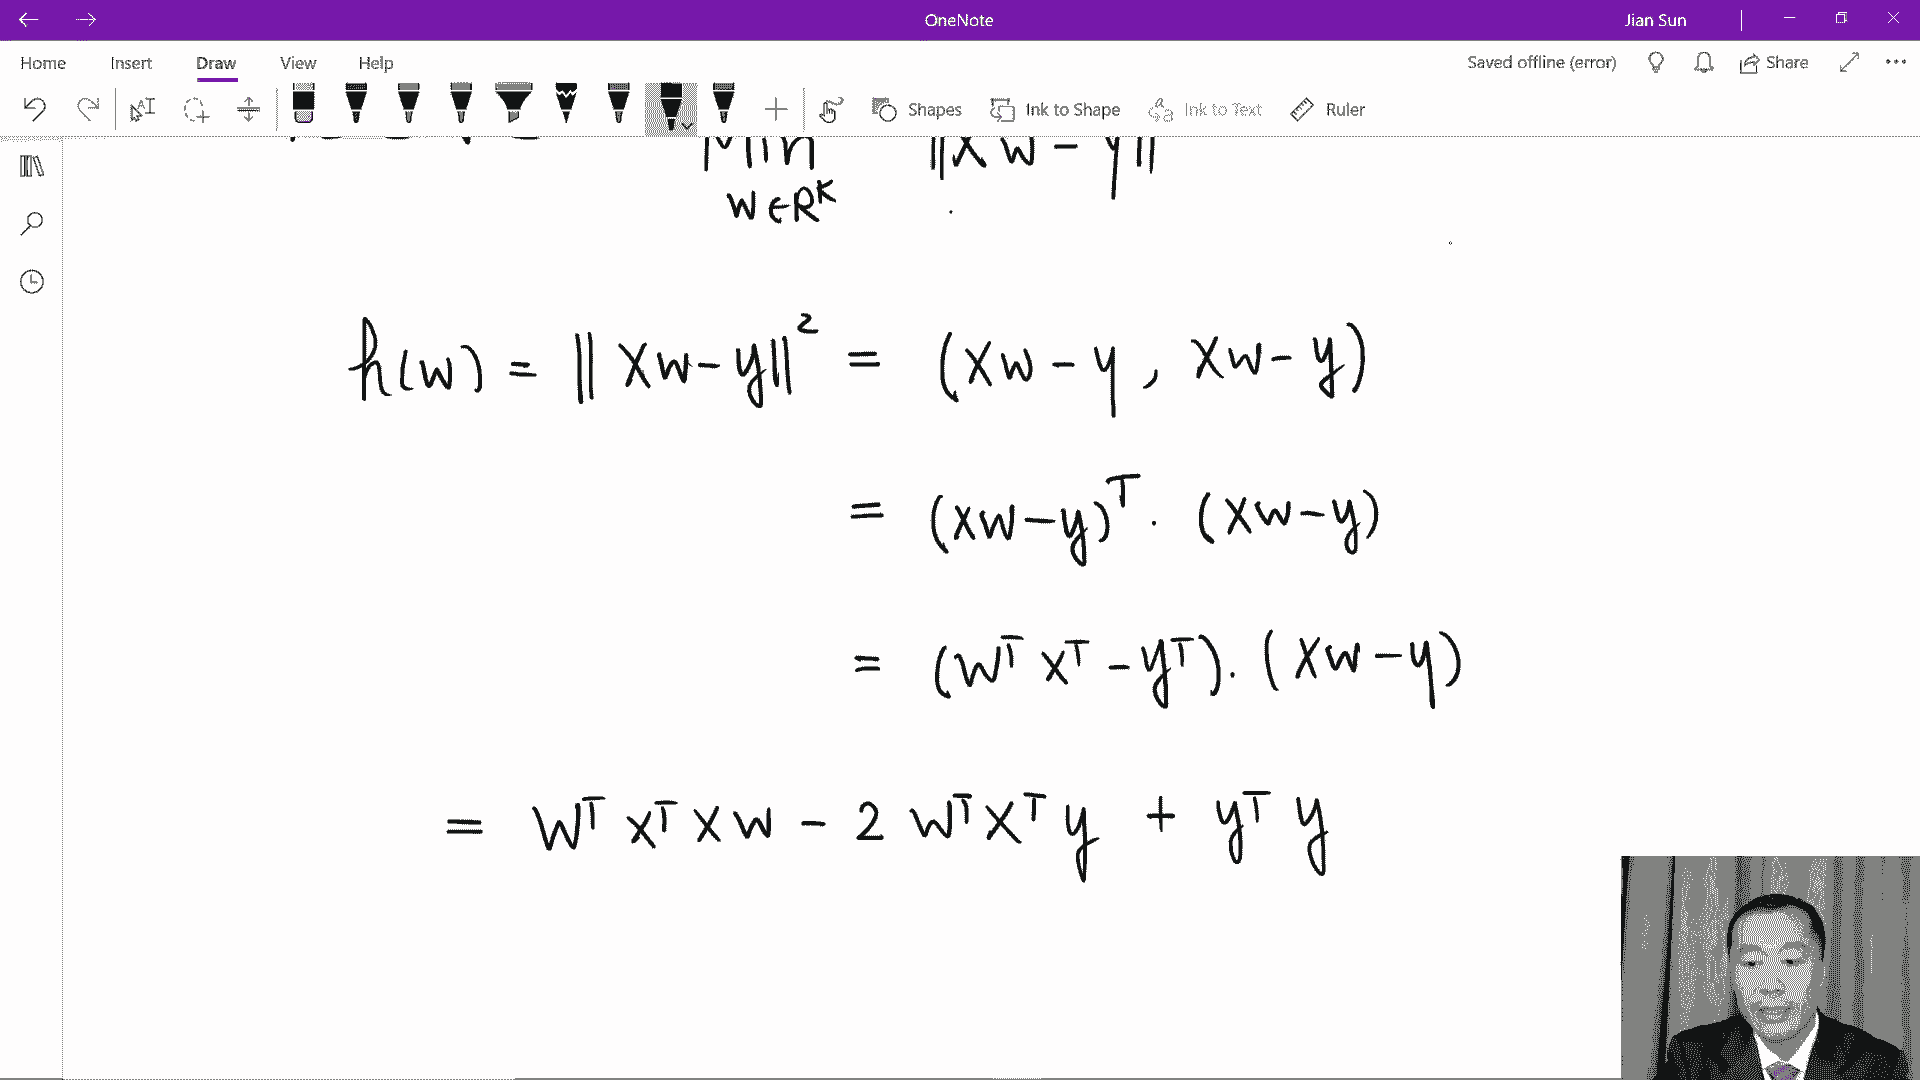 OneNote
Jian Sun
Home Insert Draw View Help
Saved offline (error) Share
Shapes Ink to Shape Ink to Text Ruler
Min ||Xw - y||
w∈R^K
h(w) = ||Xw-y||² = (Xw-y, Xw-y)
= (Xw-y)^T · (Xw-y)
= (W^T X^T - y^T) · (Xw-y)
= W^T X^T X w - 2 W^T X^T y + y^T y